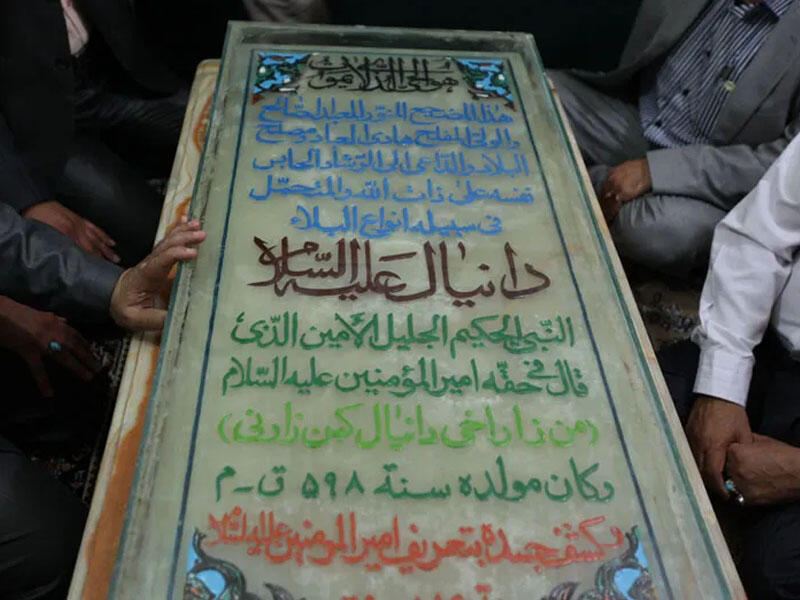 هو الحي الذي لا يموت
هذا المضجع المنور للعبد الصالح
والولي المفلح هادي العباد و مصلح
البلاد والداعي الی الرشاد الحابس
نفسه علی ذات الله والمتحمل
في سبيله انواع البلاء
دانیال علیه السلام
النبي الحكيم الجليل الأمين الذي
قال في حقه امير المؤمنين عليه السلام
(من زار اخي دانيال كمن زارني)
وكان مولده سنة ۵۹۸ ق-م
كشف جسده بتعريف امير المؤمنين عليه السلام